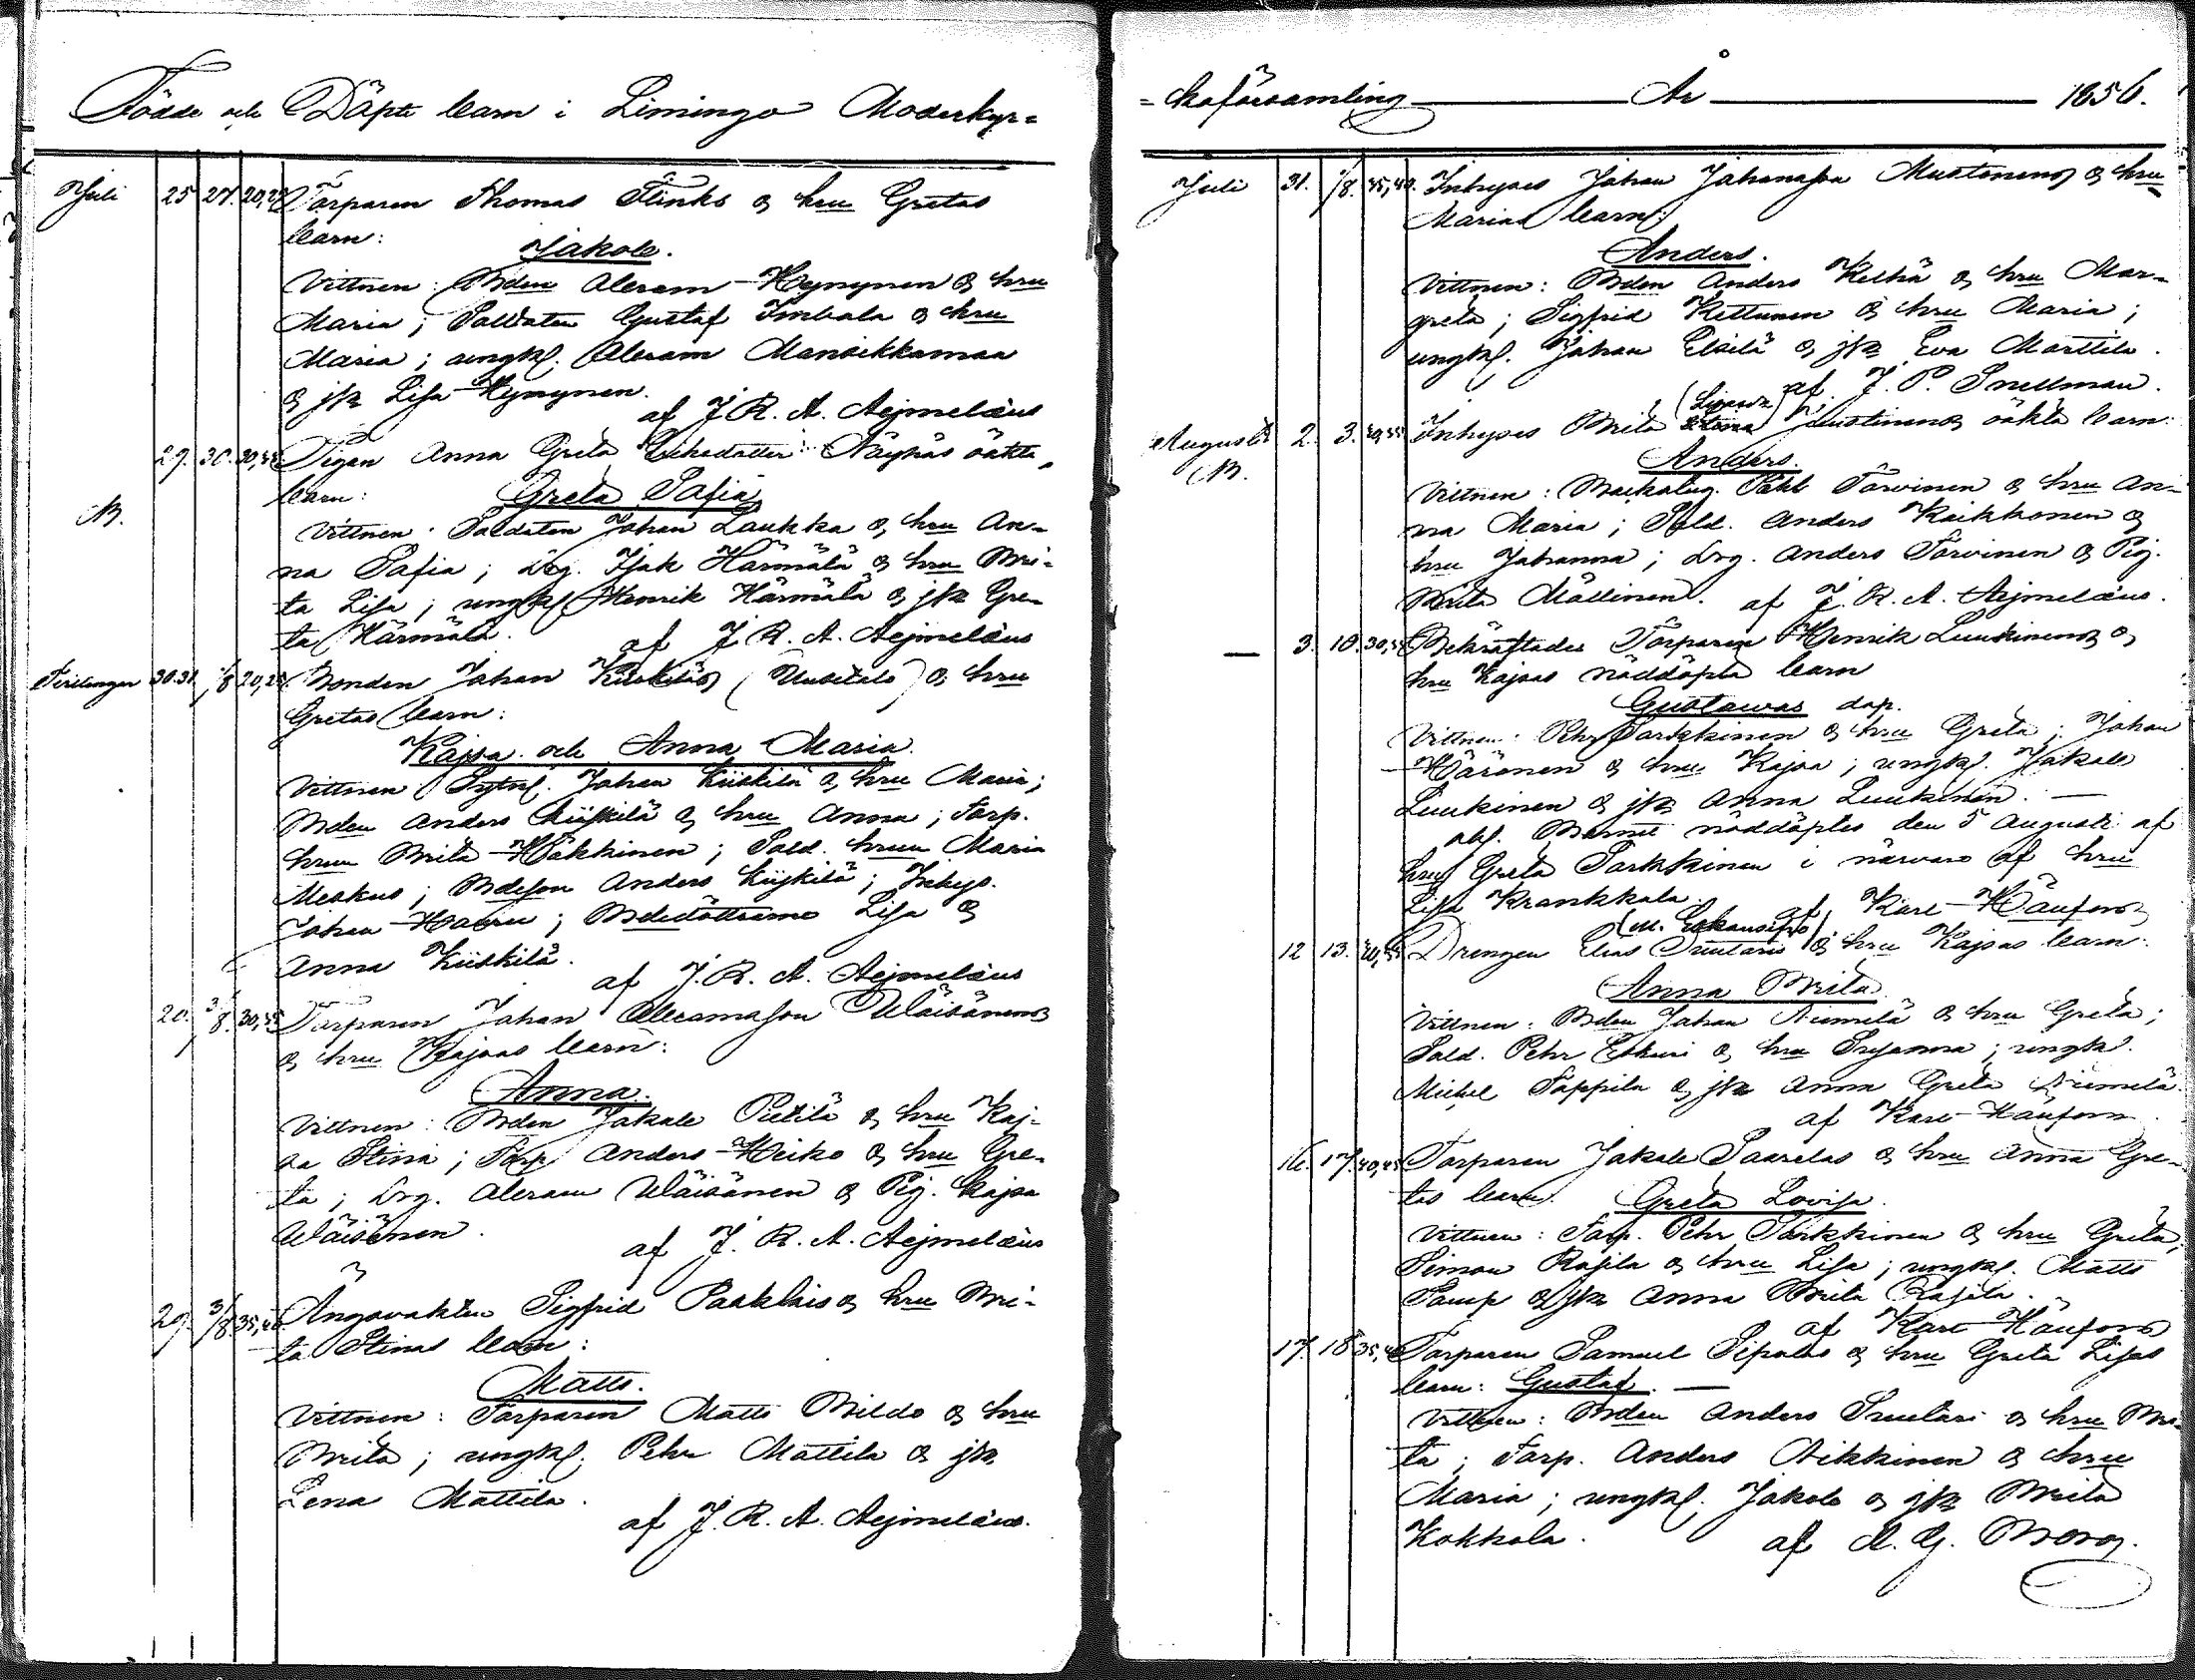 Födde och Döpte barn i Limingo Moderkyr=
Juli 25 27. 20,25 Torparen Thomas Flinks & hru Gretas
barn:
Jakob.
Vittnen: Bden Abram Hynynen & hru
Maria; Soldaten Gustaf Imbala & hru
Maria; ungkl. Abram Mansikkamaa
& jfr Lisa Hynynen.
af J. R. A. Aejmelæus
29. 30. Pigan Anna Greta Näykäs oäkta
barn: Greta Sofia
N.
Vittnen: Soldaten Johan Laukka & hru An-
na Sofia; Drg. Isak Härmälä & hru Bri-
ta Lisa; ungkl Henrik Härmälä & jfr Gre-
ta Härmälä.
af J. R. A. Aejmelæus
Tvillingar 30.31. 1/8 20,25 Bonden Johan Kiiskiläs (Uusitalo) & hru
Gretas barn:
Kajsa och Anna Maria.
Vittnen: Sytnl. Johan Kiiskilä & hru Maria;
Bden Anders Kiiskilä & hru Anna; Torp.
hrun Brita Häkkinen; Sold. hrun Maria
Meskus; Bdeson Anders Kiiskilä; Inhys.
Johan; Bdedöttrarne Lisa &
Anna Kiiskilä.
af J. R. A. Aejmelæus
3/8. 30,35 Torparen Johan Abramsson Wäisänens
& hru Kajsas barn:
Anna.
Vittnen: Bden Jakob Pietilä & hru Kaj-
sa Stina; Torp Anders Heiko & hru Gre-
ta; Drg. Abram Wäisänen & Pig. Kajsa
Wäisänen.
af J. R. A. Aejmelæus
29. 31/8 35,40 Ångsvakten Sigfrid & hru Bri-
ta Stinas barn:
Matts.
Vittnen: Torparen Matts Mildo & hru
Brita; ungkl. Pehr Mattila & jfr
Lena Mattila.
af J. R. A. Aejmelæus.
=koförsamling År 1856.
Juli 31. 1/8. 35,40. Inhyses Johan Johansson Mustonens & hru
Marias barn:
Anders.
Vittnen: Bden Anders Kelhä & hru Mar-
greta; Sigfrid Kettunen & hru Maria;
ungkl. Johan Eksilä & jfr Eva Marttila.
af J. P. Snellman.
Augusti 2. 3. Inhyses Brita oäkta barn:
N.
Anders.
Vittnen: Backstug. Påhl Torvinen & hru An-
na Maria; Sold. Anders Kaikkonen &
hru Johanna; Drg. Anders Torvinen & Pig.
Brita Mällinen. af J. R. A. Aejmelæus.
— 3. 10. 30,35 Bekräftades Torparen Henrik Luukinens &
hru Kajsas nöddöpta barn
Gustawas dop.
Vittnen: Pehr Sarkkinen & hru Greta; Johan
Härönen & hru Kajsa; ungkl. Jakob
Luukinen & jfr Anna Luukinen. —
obs. Barnet nöddöptes den 5 Augusti af
hru Greta Sarkkinen i närvaro af hru
Lisa Krankkala.
af Karl Häufors
12 13. Drengen Elias Suutaris & hru Kajsas barn:
Anna Brita
Vittnen: Bden Johan Niemelä & hru Greta;
Sold. Pehr Eskuri & hru Susanna; ungkl.
Michel Tappila & jfr Anna Greta Niemelä.
af Karl Häufors
16. 17. 40,45 Torparen Jakob Saarelas & hru Anna Gre-
tas barn. Greta Lovisa.
Vittnen: Torp. Pehr Sarkkinen & hru Greta;
Simon Rajila & hru Lisa; ungkl. Matts
Saup & jfr Anna Brita Rajila.
af Karl Häufors
17. 18 35,40 Torparen Samuel Sipolas & hru Greta Lisas
barn: Gustaf. —
Vittnen: Bden Anders Suutari & hru Bri-
ta; Torp. Anders Aikkinen & hru
Maria; ungkl. Jakob & jfr Brita
Kokkola.
af A. G. Borg.